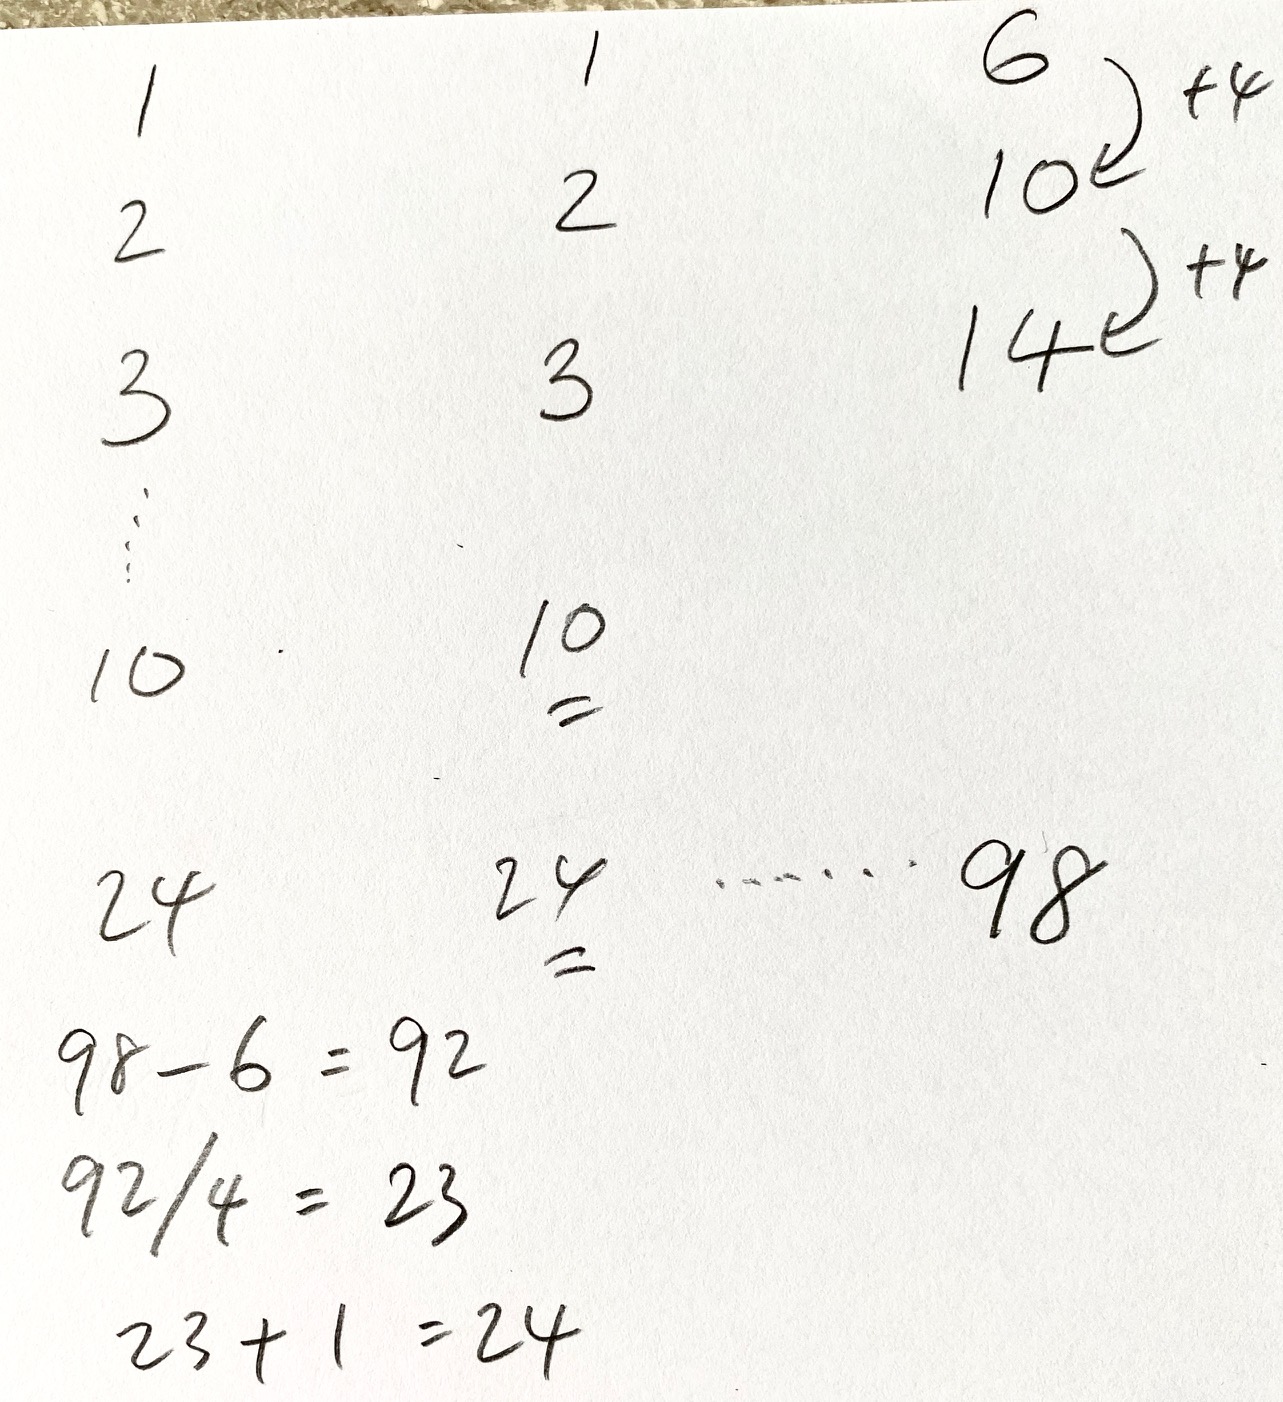 1 1 6
+4
2 2 10
+4
3 3 14
10 10
24 24 ....... 98
98 - 6 = 92
92/4 = 23
23 + 1 = 24